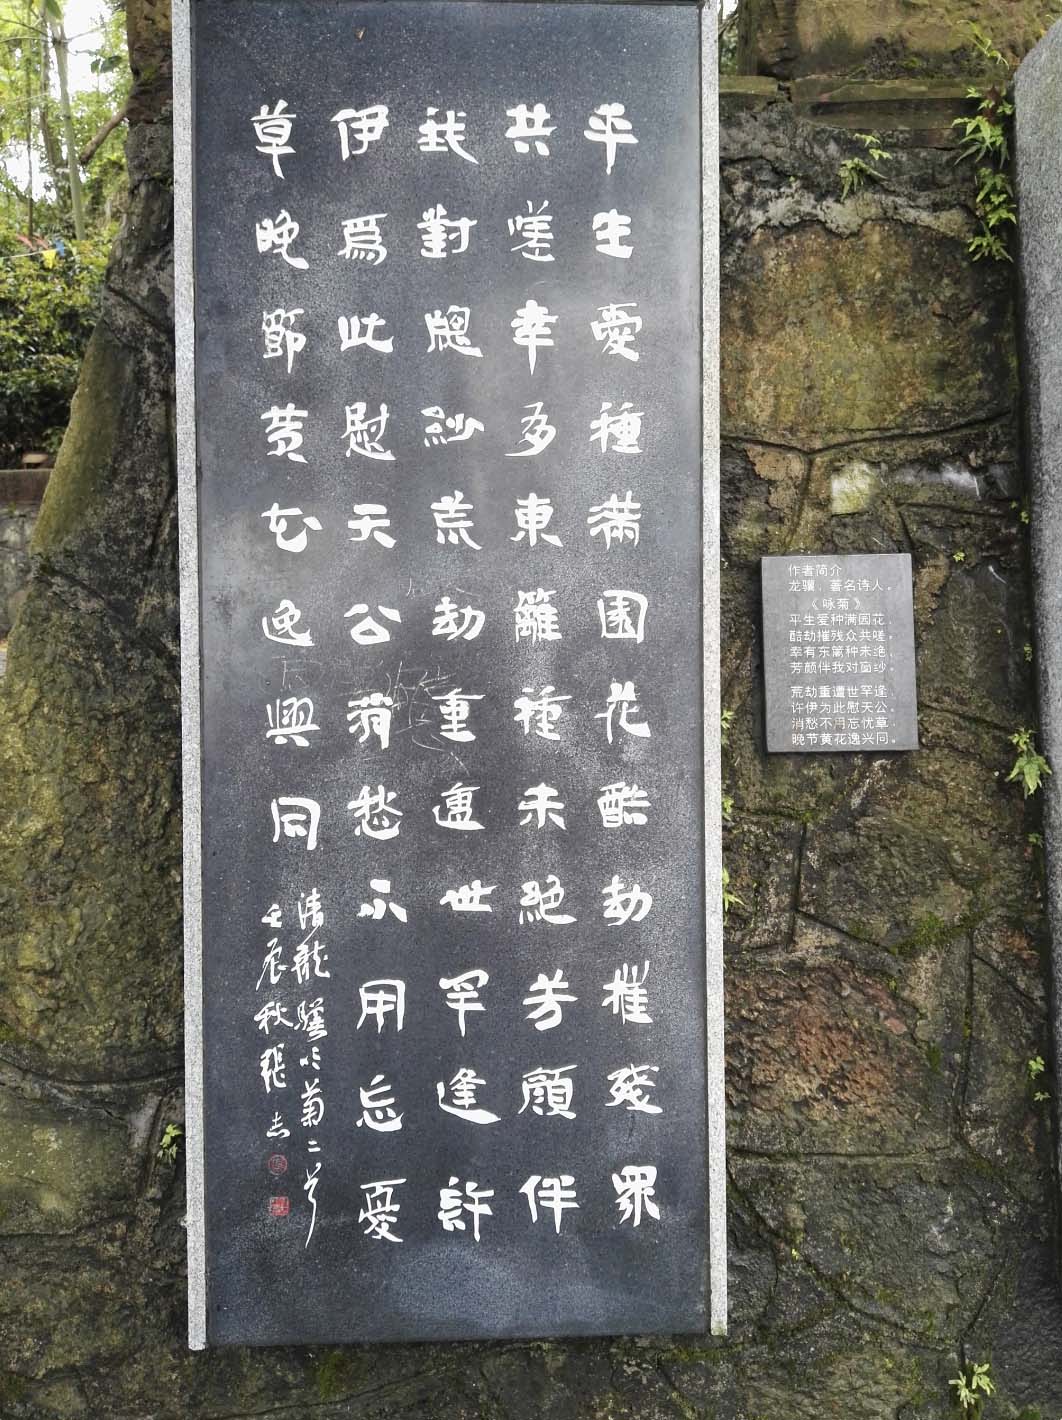 平生愛種满園花酷劫摧残眾
共嗟幸多東籬種未絕芳顏伴
我對窗紗荒劫重遭世罕逢許
伊為此慰天公消愁不用忘憂
草晚節黄花逸興同
清龍驤咏菊二首
壬辰秋張志
作者简介
龙骧，著名诗人。
《咏菊》
平生爱种满园花，
酷劫摧残众共嗟，
幸有东篱种未绝，
芳颜伴我对窗纱。
荒劫重遭世罕逢
许伊为此慰天公。
消愁不用忘忧草，
晚节黄花逸兴同。